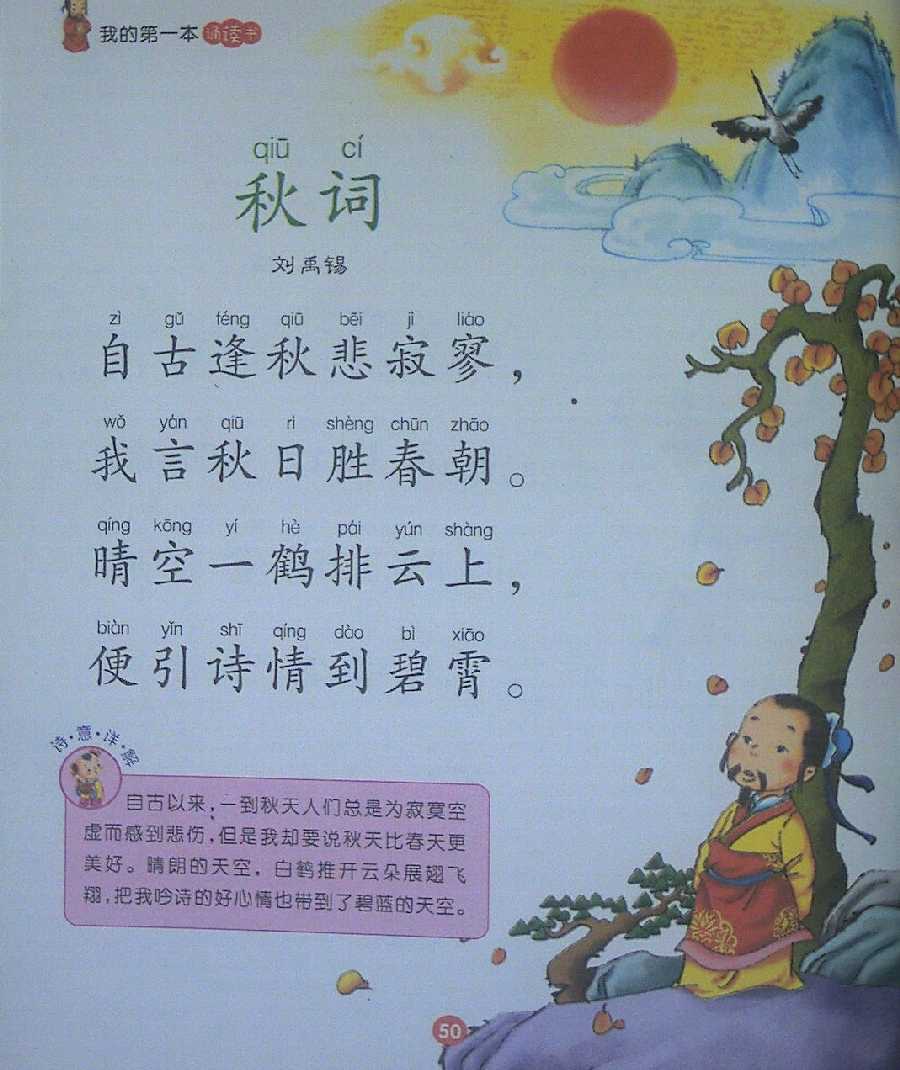 我的第一本诵读书
qiū cí
秋词
刘禹锡
zì gǔ féng qiū bēi jì liáo
自古逢秋悲寂寥，
wǒ yán qiū rì shèng chūn zhāo
我言秋日胜春朝。
qíng kōng yí hè pái yún shàng
晴空一鹤排云上，
biàn yǐn shī qíng dào bì xiāo
便引诗情到碧霄。
诗·意·详·解
自古以来，一到秋天人们总是为寂寞空
虚而感到悲伤，但是我却要说秋天比春天更
美好。晴朗的天空，白鹤推开云朵展翅飞
翔，把我吟诗的好心情也带到了碧蓝的天空。
50